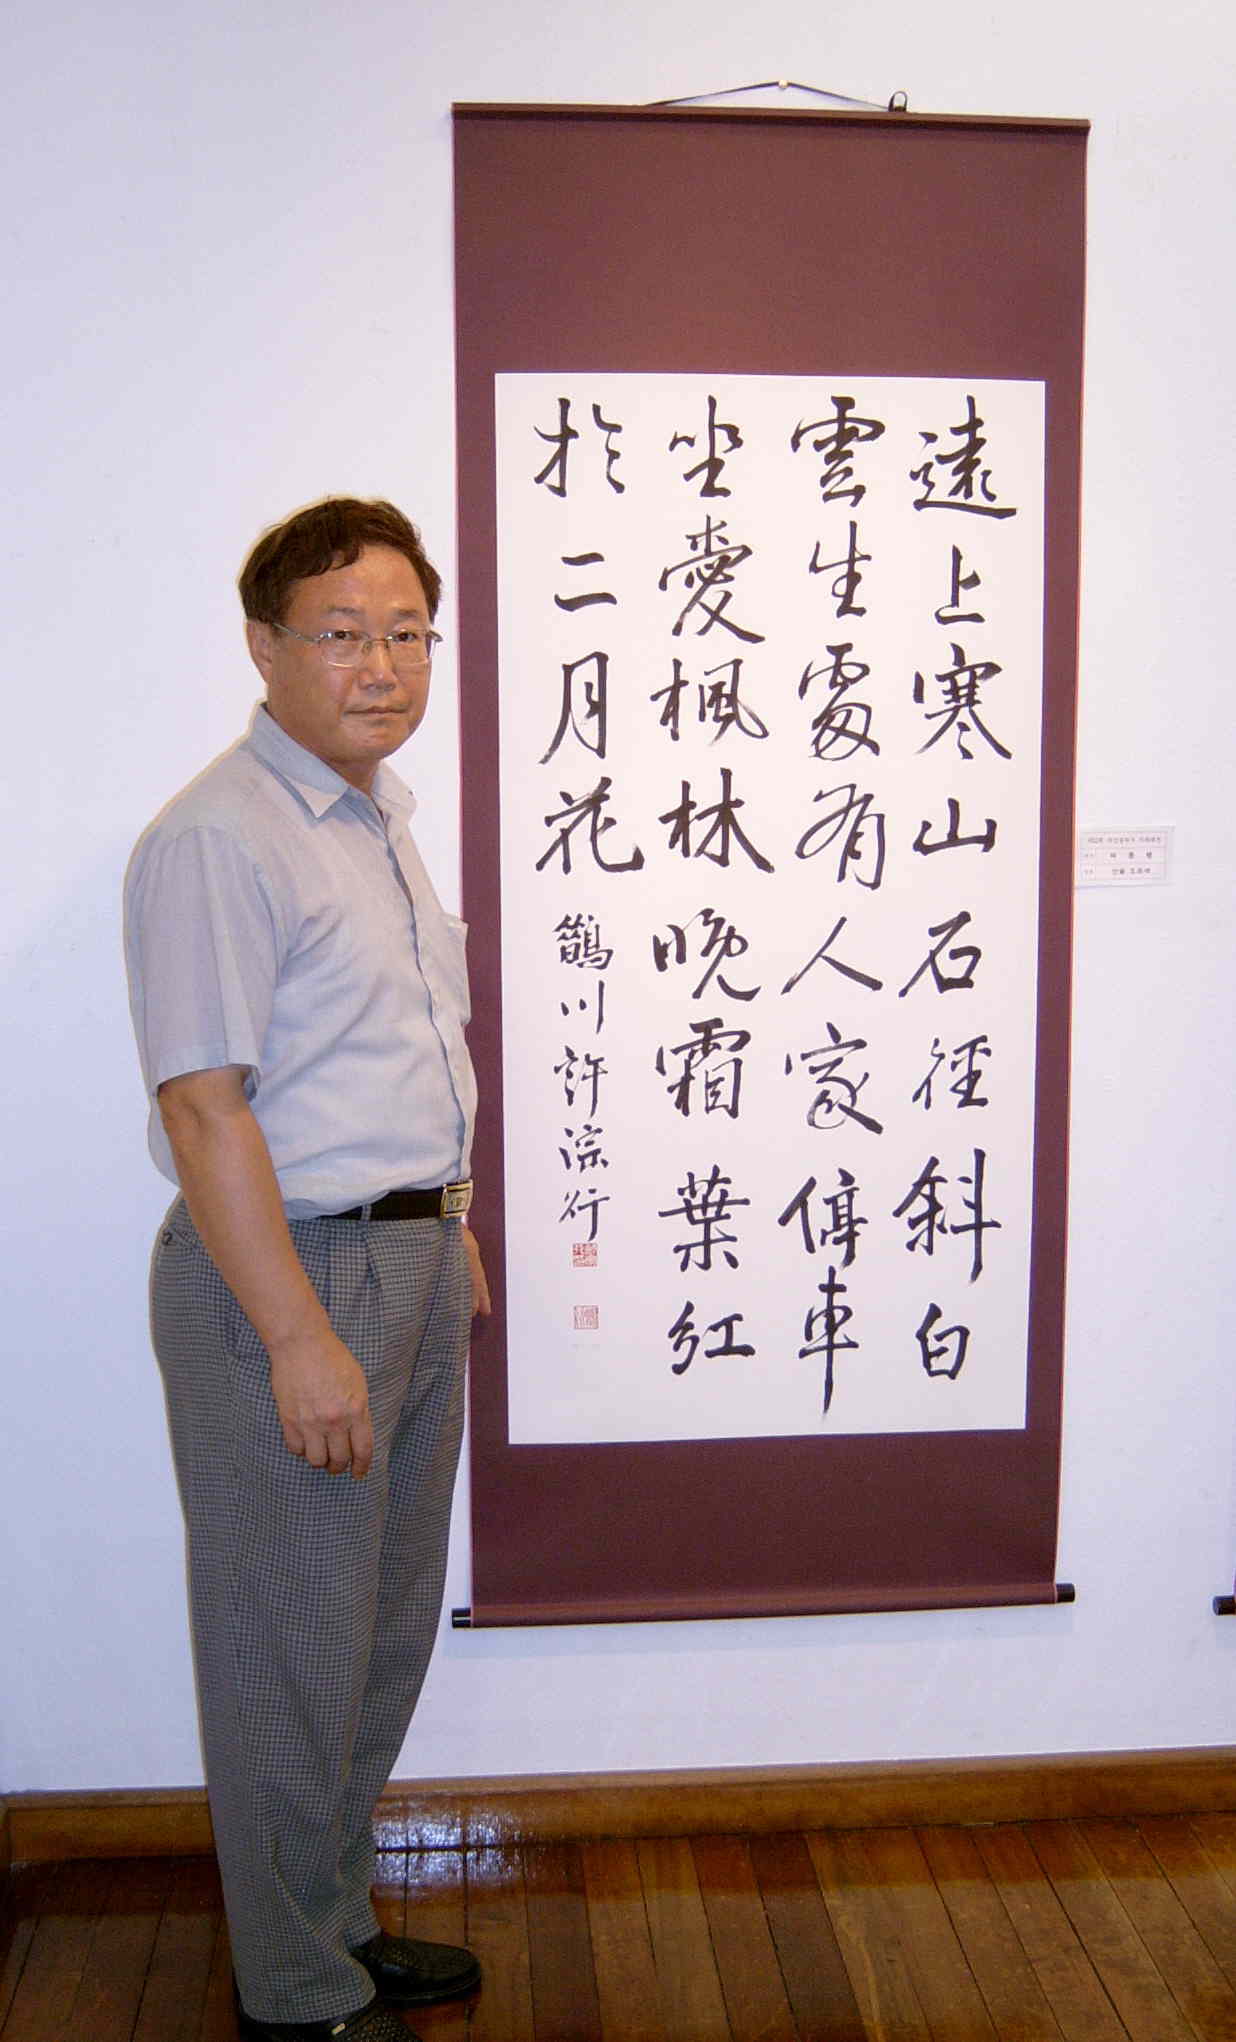 遠上寒山石徑斜白
雲生處有人家停車
坐愛楓林晩霜葉紅
於二月花
鵲川許淙行